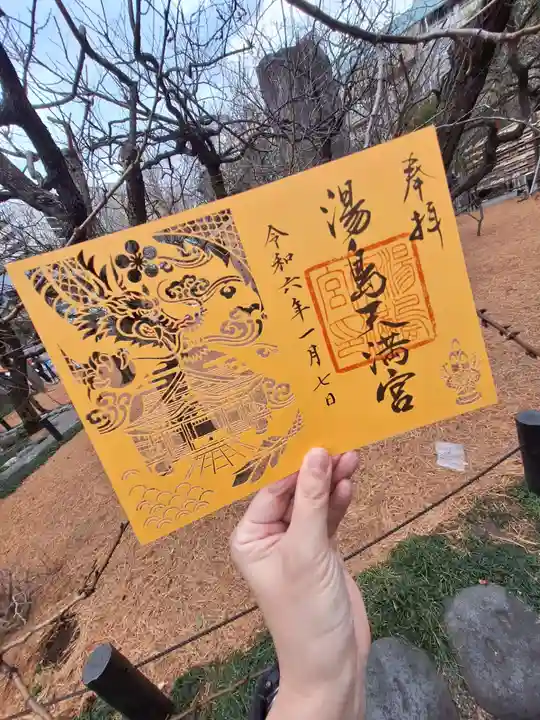 奉拝
湯島天満宮
令和六年一月七日